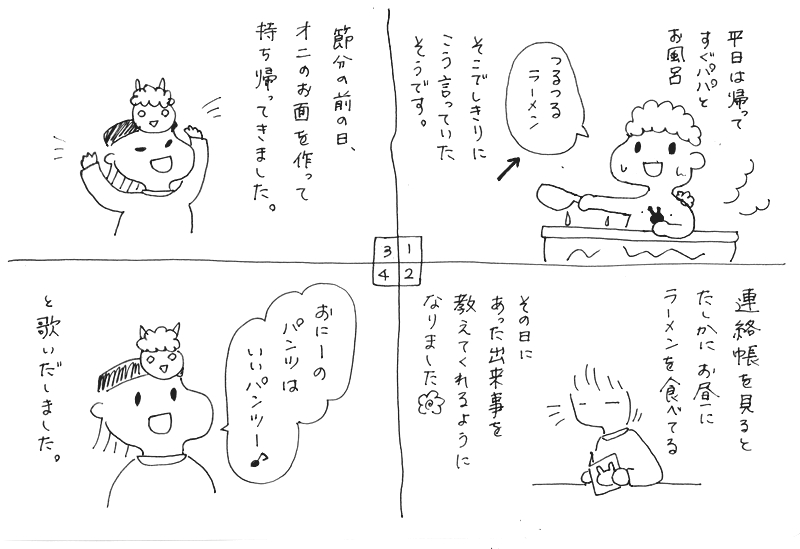 平日は帰って
すぐパパと
お風呂
つるつる
ラーメン
そこでしきりに
こう言っていた
そうです。
連絡帳を見ると
たしかにお昼に
ラーメンを食べてる
その日に
あった出来事を
教えてくれるように
なりました
節分の前の日、
オニのお面を作って
持ち帰ってきました。
おにーの
パンツは
いいパンツー♪
と歌いだしました。
3 1
4 2